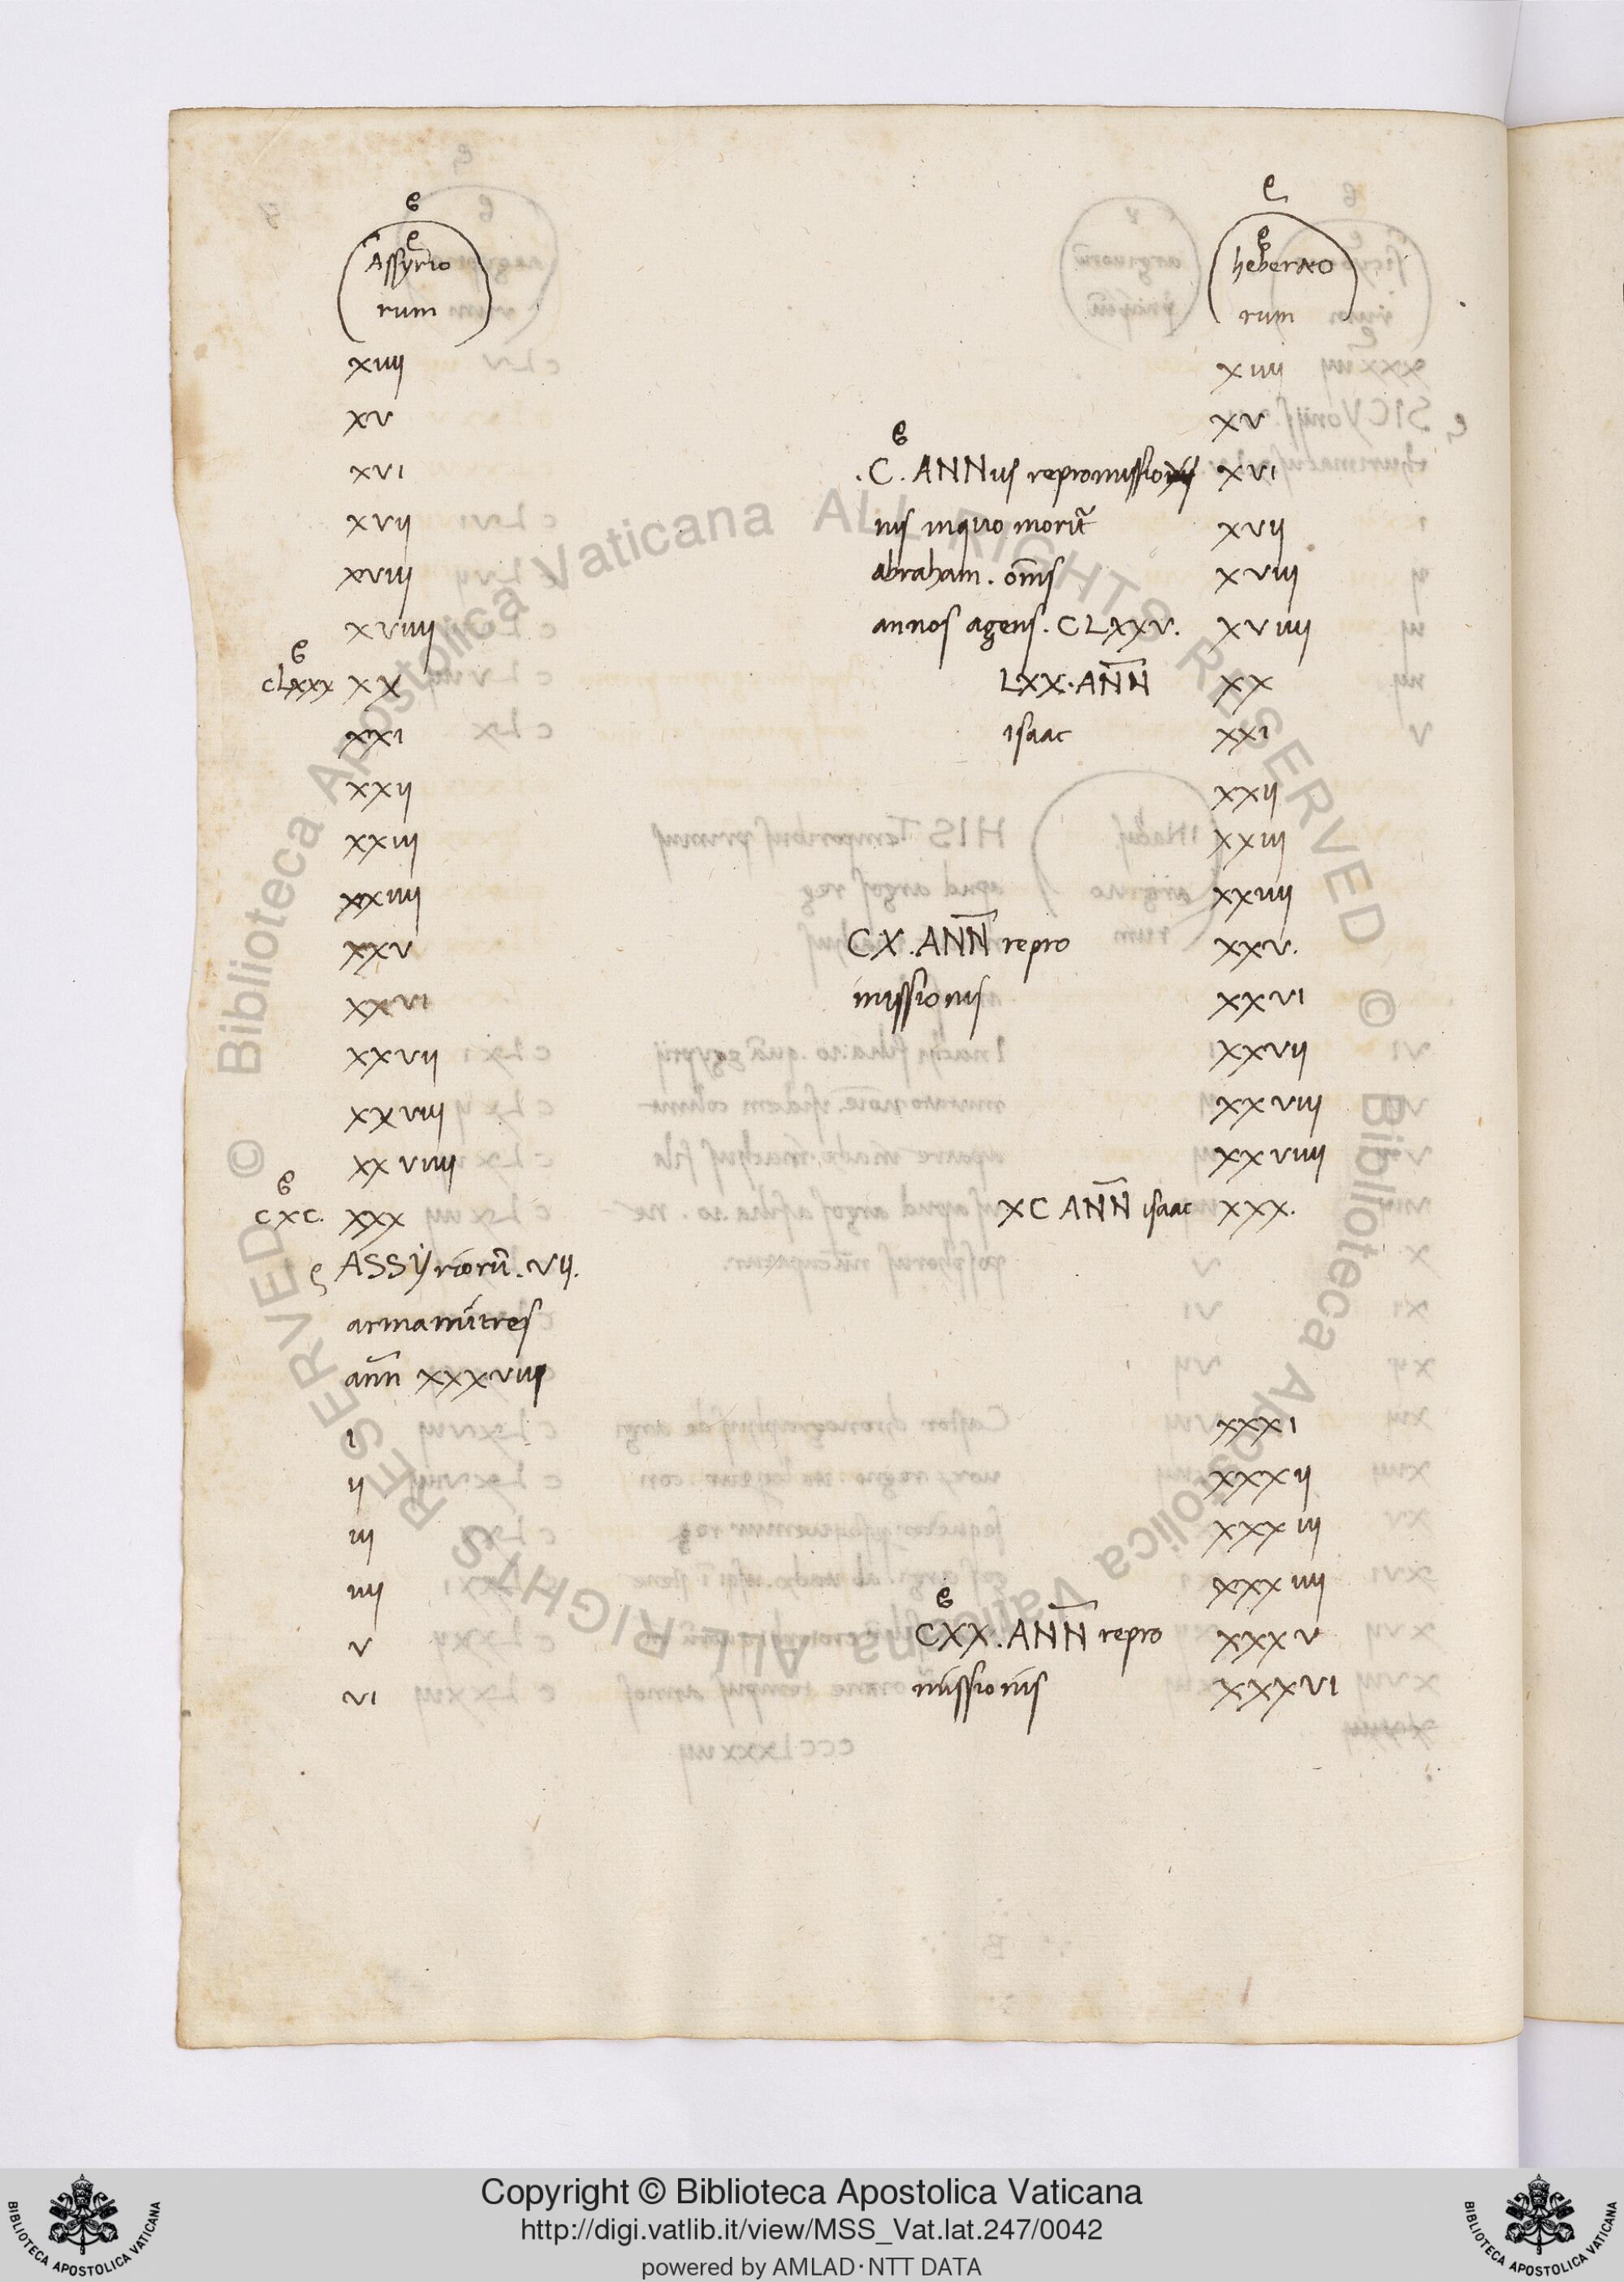 Assyrio heberaeo
rum rum
xiiii xiiii
xv xv
xvi .C. ANNus repromissio xvi
xvii nis inquo morit̃ xvii
xviii abraham. om̃s xviii
xviiii annos agens. CLXXV. xviiii
CLxxx xx LXX. ANN̅ xx
xxi isaac xxi
xxii xxii
xxiii xxiii
xxiiii xxiiii
xxv CX. ANN̅ repro xxv.
xxvi missionis xxvi
xxvii xxvii
xxviii xxviii
xxviiii xxviiii
cxc. xxx XC ANN̅ isaac xxx.
ASSYriorũ. vii.
armamitres
añn xxxviii
i xxxi
ii xxxii
iii xxxiii
iiii xxxiiii
v CXX. ANN̅ repro xxxv
vi missionis xxxvi
© Biblioteca Apostolica Vaticana ALL RIGHTS RESERVED
© Biblioteca Apostolica Vaticana ALL RIGHTS RESERVED
BIBLIOTECA APOSTOLICA VATICANA
Copyright © Biblioteca Apostolica Vaticana
http://digi.vatlib.it/view/MSS_Vat.lat.247/0042
powered by AMLAD·NTT DATA
BIBLIOTECA APOSTOLICA VATICANA